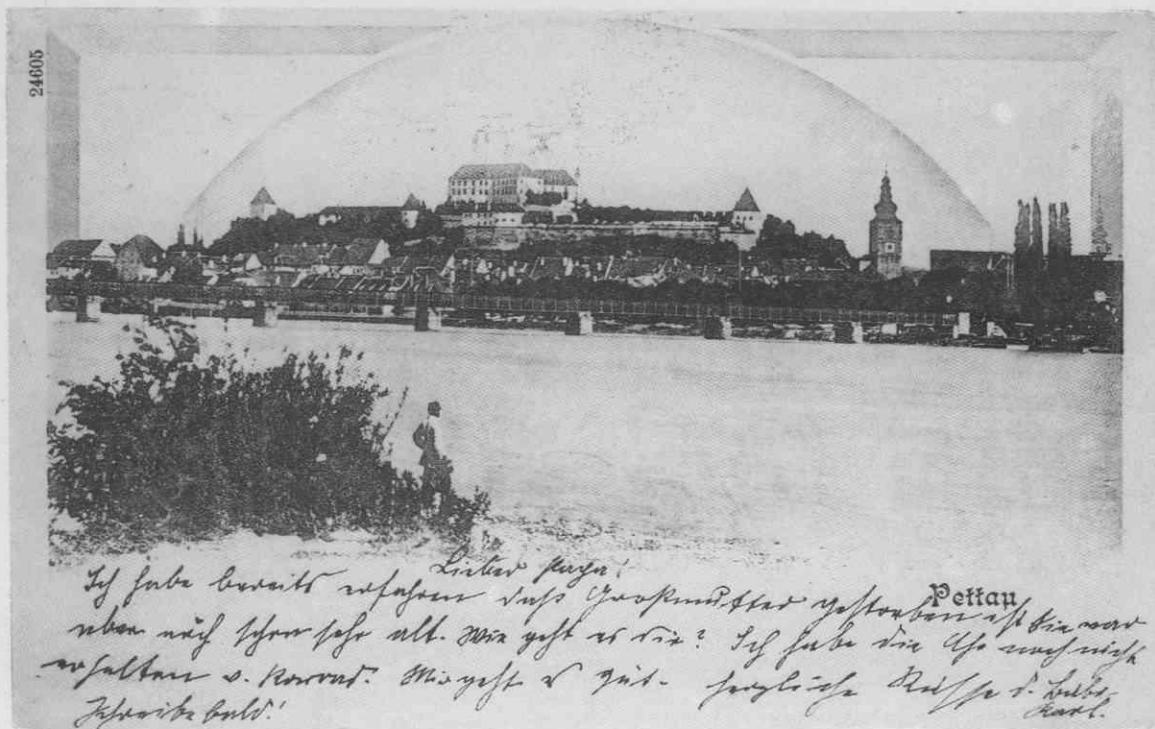 24605
Lieber Papa!
Pettau
Ich habe bereits erfahren daß Großmutter gestorben ist Sie war
aber auch schon sehr alt. Wie geht es Dir? Ich habe die Uhr noch nicht
erhalten v. Konrad. Mir geht es gut. herzliche Küsse d. Bubi
Karl.
Schreibe bald!